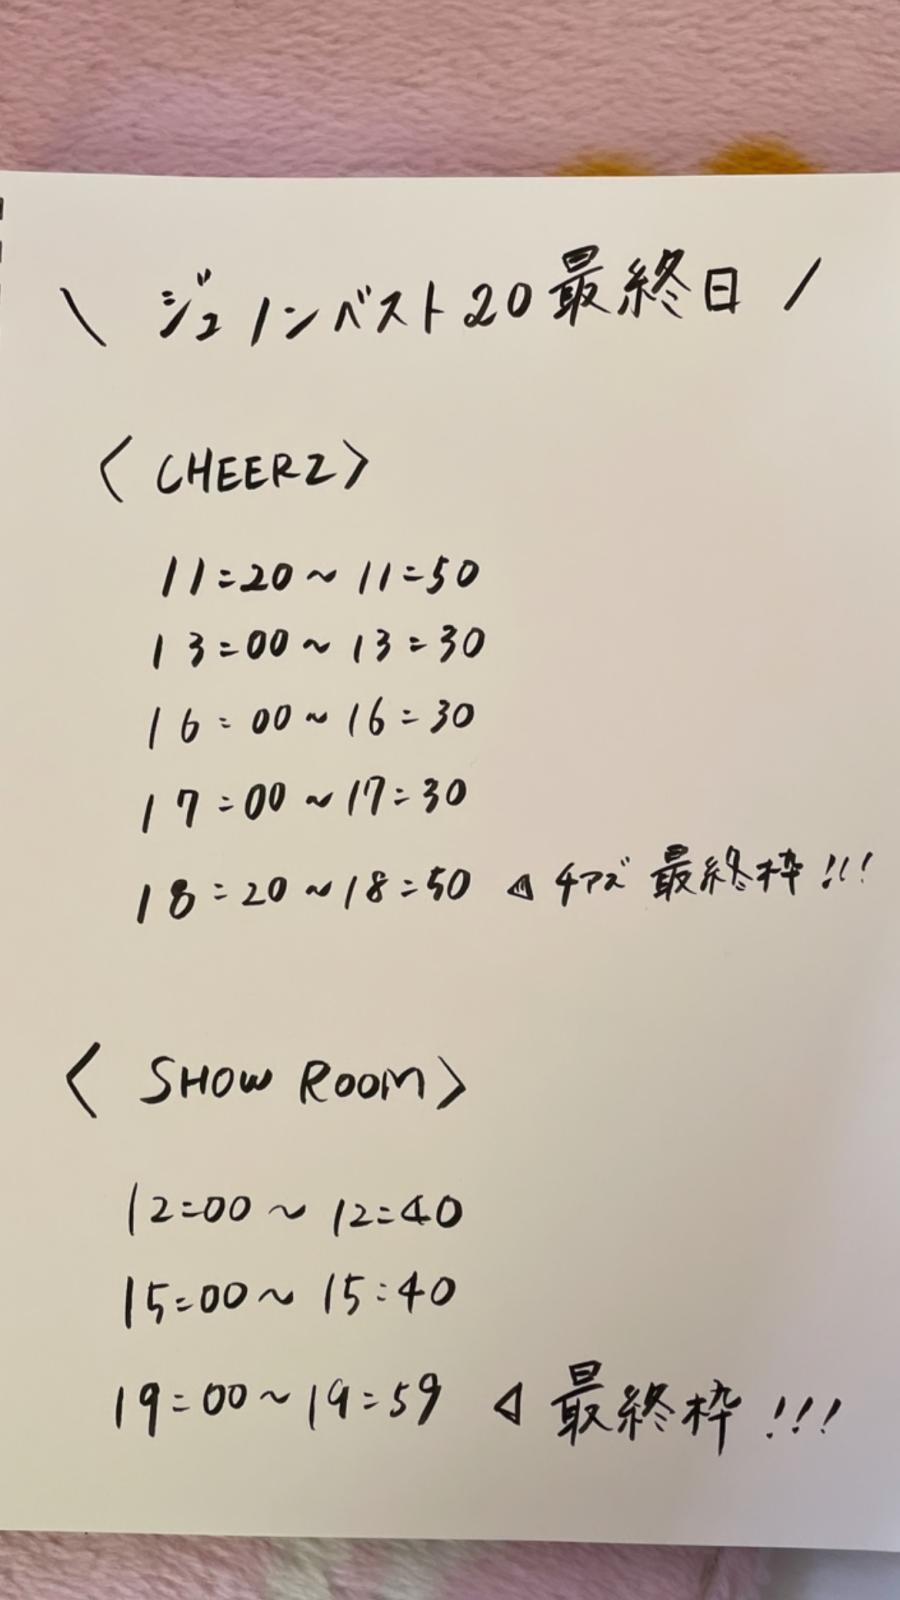 \ ジュノンベスト20最終日 /
〈 CHEERZ〉
11:20~11:50
13:00~13:30
16:00~16:30
17:00~17:30
18:20~18:50 ◁ チアズ 最終枠!!!
〈 SHOW ROOM〉
12:00~12:40
15:00~15:40
19:00~19:59 ◁ 最終枠!!!